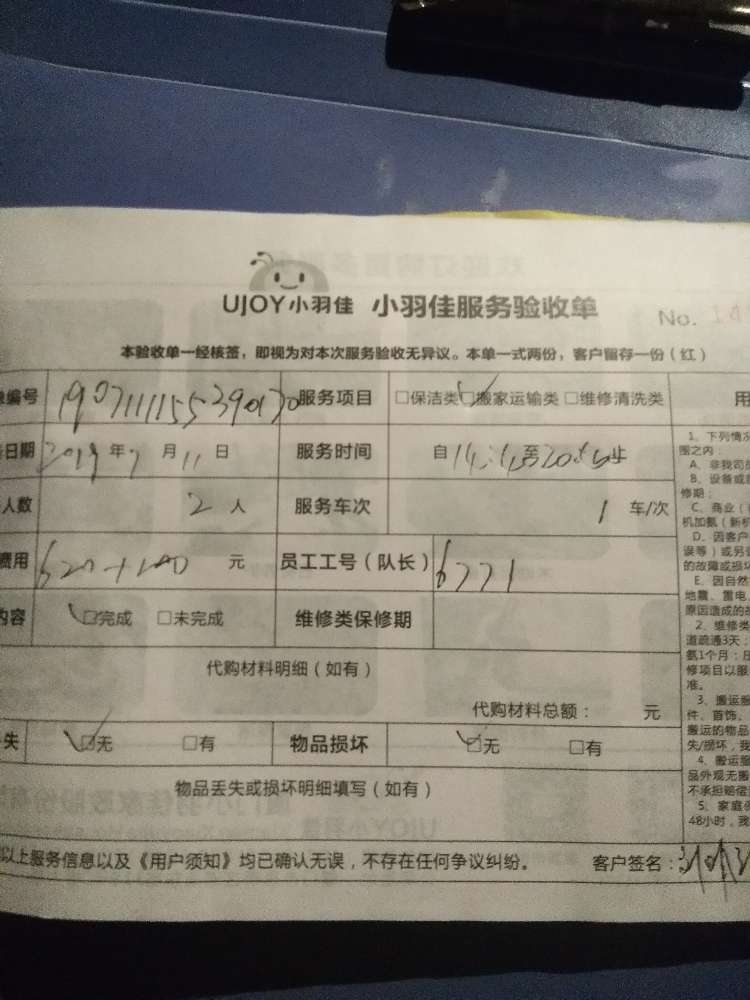 UJOY小羽佳 小羽佳服务验收单
No.
本验收单一经核签，即视为对本次服务验收无异议。本单一式两份，客户留存一份（红）
编号 1907111155390170 服务项目 □保洁类 ☑搬家运输类 □维修清洗类 用
日期 2019年7月11日 服务时间 自14:45至20:
人数 2人 服务车次 1 车/次
费用 620+200 元 员工工号（队长） 6771
内容 ☑完成 □未完成 维修类保修期
代购材料明细（如有）
代购材料总额： 元
失 ☑无 □有 物品损坏 ☑无 □有
物品丢失或损坏明细填写（如有）
以上服务信息以及《用户须知》均已确认无误，不存在任何争议纠纷。 客户签名：
1、下列情况
围之内：
A、非我司
B、设备或
修期；
C、商业（
机加氨（新机
D、因客户
误等）或另
的故障或损坏
E、因自然
地震、雷电
原因造成的故
2、维修类
道疏通3天；
氨1个月；
修项目以服
准。
3、搬运服
件、首饰、
搬运的物品
失/损坏，我
4、搬运服
品外观无搬
不承担赔偿
5、家庭保
48小时，我